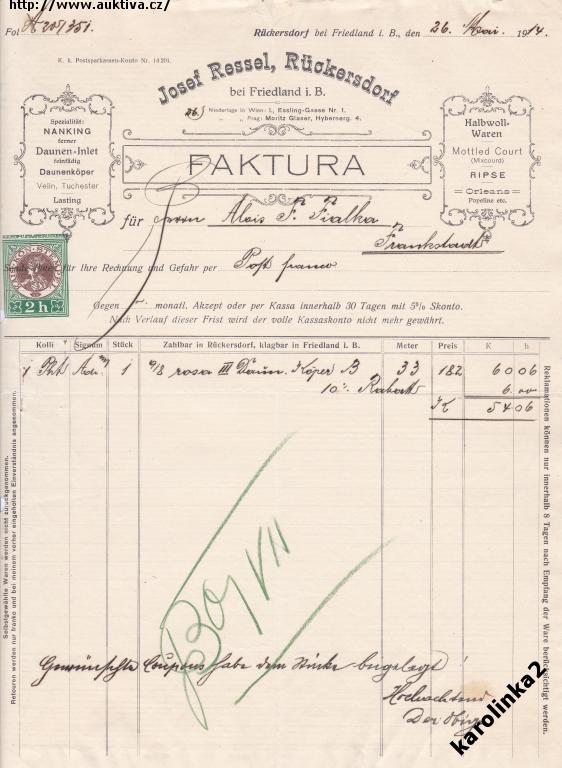 http://www.auktiva.cz/
Fol. A 207/351.
Rückersdorf bei Friedland i. B., den 26. Mai. 1914.
K. k. Postsparkassen-Konto Nr. 14201.
Josef Ressel, Rückersdorf
bei Friedland i. B.
Niederlage in Wien: I., Essling-Gasse Nr. 1.
„ „ Prag: Moritz Glaser, Hybernerg. 4.
Spezialität:
NANKING
ferner
Daunen-Inlet
feinfädig
Daunenköper
Velin, Tuchester
Lasting
Halbwoll-
Waren
Mottled Court
(Mixcourd)
RIPSE
Orleans
Popeline etc.
FAKTURA
für Herrn Alois F. Fialka
Frankstadt
2 h
für Ihre Rechnung und Gefahr per Post franco
Gegen monatl. Akzept oder per Kassa innerhalb 30 Tagen mit 5% Skonto.
Nach Verlauf dieser Frist wird der volle Kassaskonto nicht mehr gewährt.
Kolli Signum Stück Zahlbar in Rückersdorf, klagbar in Friedland i. B. Meter Preis K h
1 1 rosa III Daun. Köper B 33 182 60 06
10% Rabatt 6.
K 54 06
Gewünschte Coupons habe dem Stücke beigelegt!
Hochachtend
Der Obige
Selbstgewählte Waren werden nicht zurückgenommen.
Retouren werden nur franko und bei meinem vorher eingeholten Einverständnis angenommen.
Reklamationen können nur innerhalb 8 Tagen nach Empfang der Ware berücksichtigt werden.
karolinka2